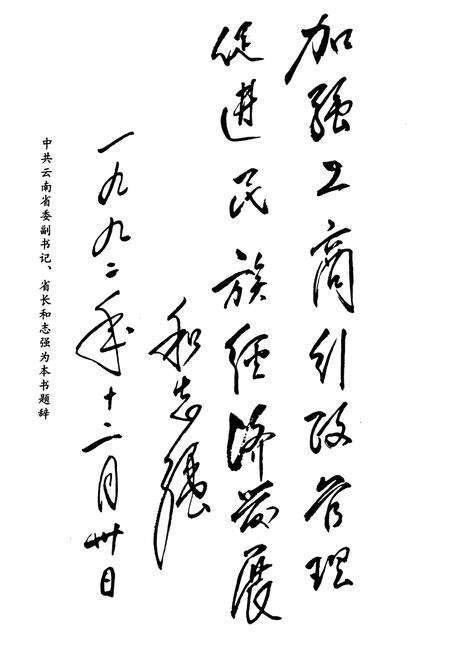 加强工商行政管理
促进民族经济发展
和志强
一九九二年十二月卅日
中共云南省委副书记、省长和志强为本书题辞